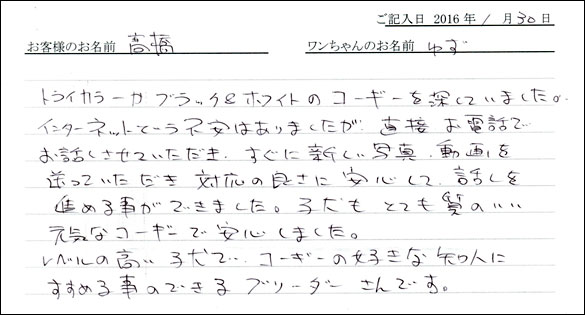 ご記入日 2016年 1 月30日
お客様のお名前 高橋 ワンちゃんのお名前 ゆず
トライカラーかブラック&ホワイトのコーギーを探していました。
インターネットという不安はありましたが、直接お電話で
お話しさせていただき、すぐに新しい写真、動画を
送っていただき対応の良さに安心して、話しを
進める事ができました。子犬もとても質のいい
元気なコーギーで安心しました。
レベルの高い子犬で、コーギーの好きな知人に
すすめる事のできるブリーダーさんです。